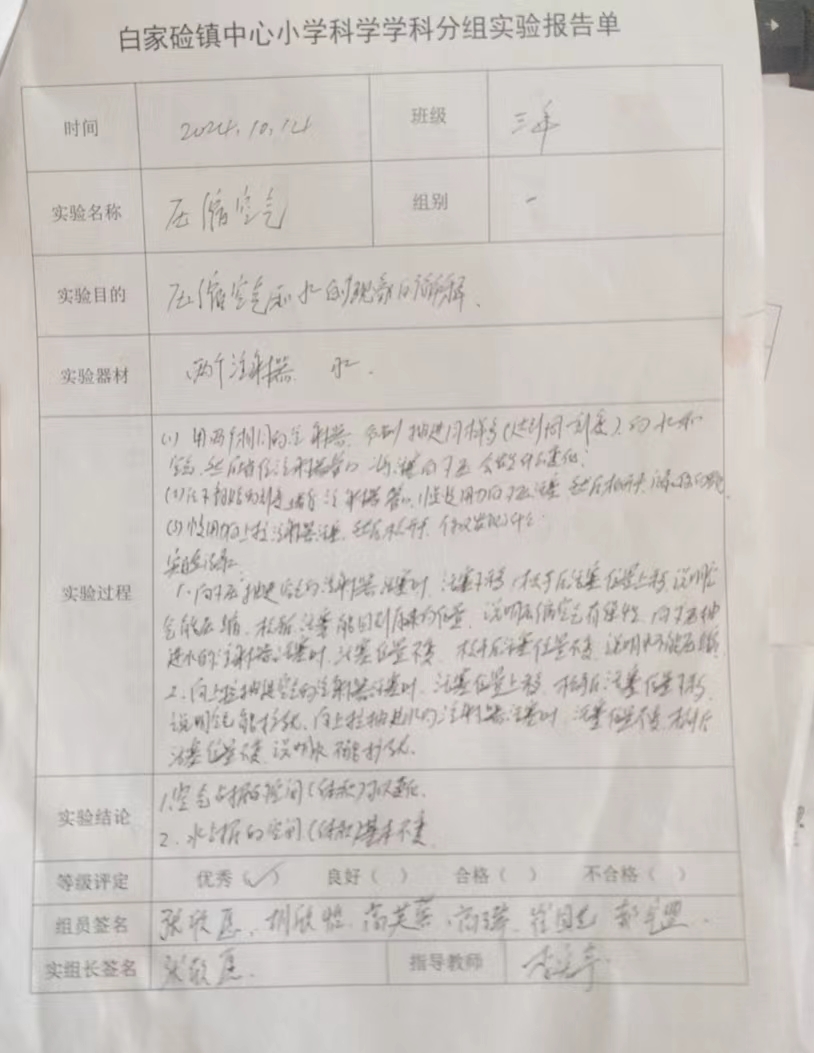 白家硷镇中心小学科学学科分组实验报告单
时间 2024.10.14 班级 三年
实验名称 压缩空气 组别 一
实验目的 压缩空气和水的现象的解释.
实验器材 两个注射器 水.
(1) 用两个相同的注射器, 分别抽进同样多(达到同一刻度)的水和
空气, 然后堵住注射器管口
(3) 慢慢用力向上拉注射器活塞, 然后松开, 你又发现了什么
实验过程 1. 向下压抽进空气的注射器活塞时, 活塞下移, 松手后活塞位置上移, 说明空
气能压缩, 松手后活塞能回到原来的位置, 说明压缩空气有弹性, 向下压抽
进水的注射器活塞时, 活塞位置不变, 松手后活塞位置不变, 说明水不能压缩
2. 向上拉抽进空气的注射器活塞时, 活塞位置上移, 松手后活塞位置下移,
说明空气能扩张, 向上拉抽进水的注射器活塞时, 活塞位置不变, 松手后
活塞位置不变, 说明水不能扩张.
实验结论 1. 空气占据的空间(体积)可以变化.
2. 水占据的空间(体积)基本不变
等级评定 优秀(✓) 良好( ) 合格( ) 不合格( )
组员签名
实组长签名 指导教师